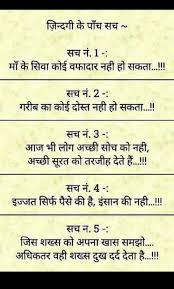 ज़िन्दगी के पाँच सच ~
सच नं. 1 -:
माँ के सिवा कोई वफादार नही हो सकता...!!!
सच नं. 2 -:
गरीब का कोई दोस्त नही हो सकता...!!
सच नं. 3 -:
आज भी लोग अच्छी सोच को नही,
अच्छी सूरत को तरजीह देते हैं...!!!
सच नं. 4 -:
इज्जत सिर्फ पैसे की है, इंसान की नही...!!!
सच न. 5 -:
जिस शख्स को अपना खास समझो....
अधिकतर वही शख्स दुख दर्द देता है...!